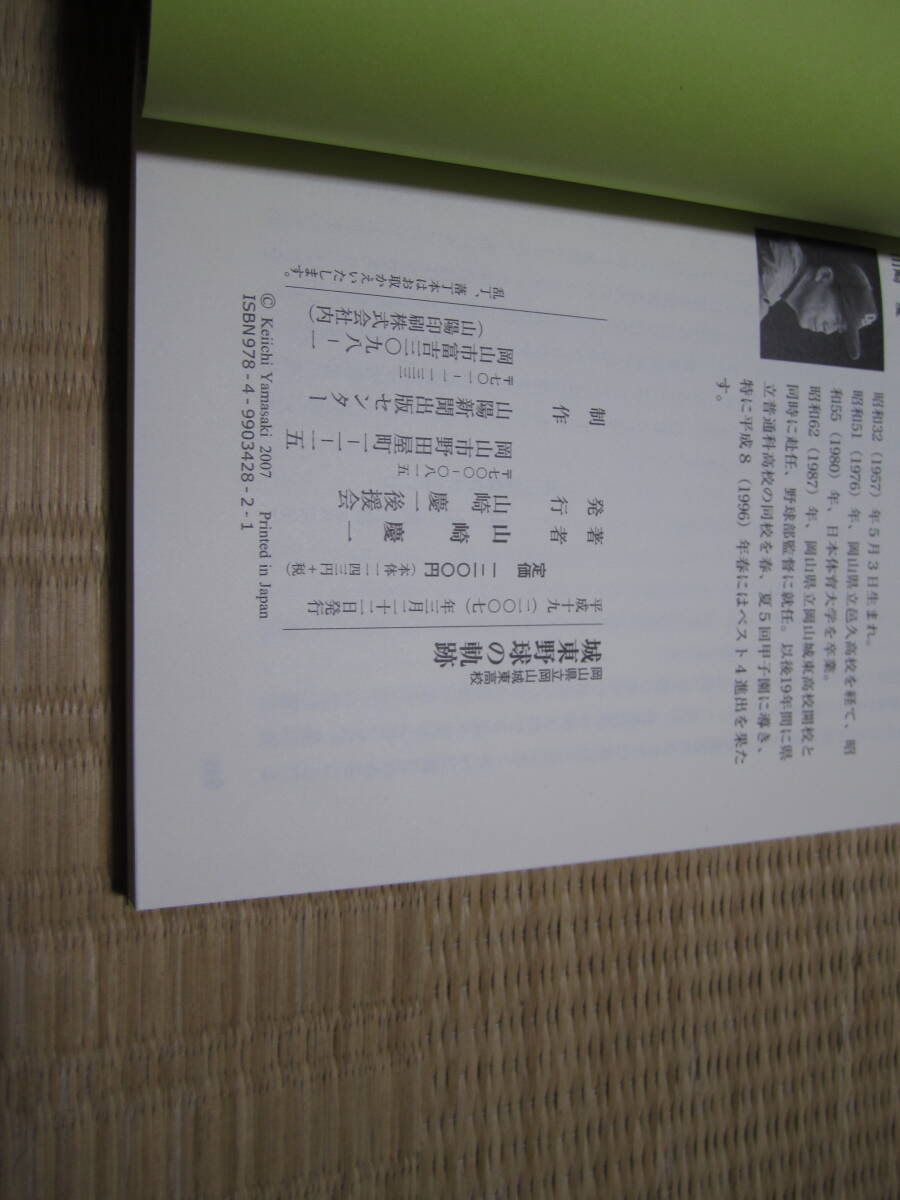 昭和32（1957）年5月3日生まれ。
昭和51（1976）年、岡山県立邑久高校を経て、昭
和55（1980）年、日本体育大学を卒業。
昭和62（1987）年、岡山県立岡山城東高校開校と
同時に赴任、野球部監督に就任。以後19年間に県
立普通科高校の同校を春、夏5回甲子園に導き、
特に平成8（1996）年春にはベスト4進出を果た
す。
岡山県立岡山城東高校
城東野球の軌跡
平成十九（二〇〇七）年三月二十二日発行
定価 一二〇〇円（本体一一四三円＋税）
著者 山崎慶一
発行 山崎慶一後援会
岡山市野田屋町一-一-一五
制作 山陽新聞出版センター
岡山市富吉三二〇九八-一
（山陽印刷株式会社内）
乱丁、落丁本はお取かえいたします。
© Keiichi Yamasaki 2007 Printed in Japan
ISBN978-4-9903428-2-1